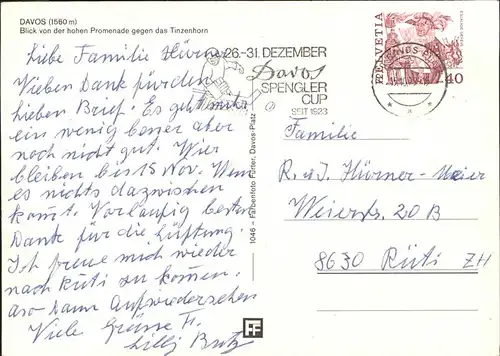 DAVOS (1560 m)
Blick von der hohen Promenade gegen das Tinzenhorn
Liebe Familie Hürner
Vielen Dank für den
lieben Brief. Es geht mir
ein wenig besser aber
noch nicht gut. Wir
bleiben bis 15 Nov. Wenn
es nichts dazwischen
kommt. Vorläufig besten
Dank für die Lüftung.
Ich freue mich wieder
nach Rüti zu kommen.
aso dann Aufwiedersehen
Viele Grüsse Fr.
Lilly Butz
1046 - Farbenfoto Furter, Davos-Platz
26.-31. DEZEMBER
Davos
SPENGLER
CUP
SEIT 1923
HELVETIA
40
Familie
R. u J. Hürner-Meier
Weierstr. 20 B
8630 Rüti ZH